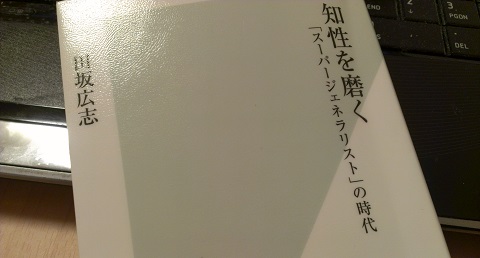 知性を磨く
「スーパージェネラリスト」の時代
田坂広志
2
3
PGDN
.
DEL